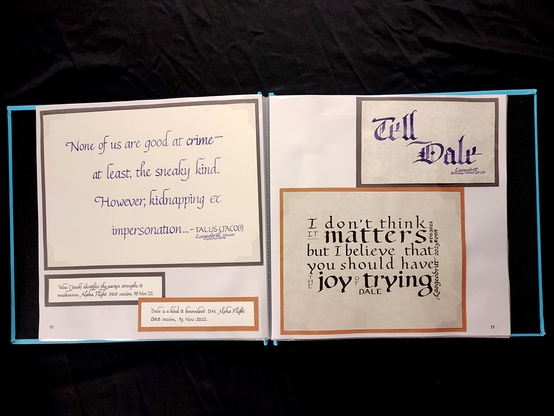 None of us are good at crime—
at least, the sneaky kind.
However, kidnapping &
impersonation... – TALUS (JACOB)
Talus (Jacob) identifies the party's strengths &
weaknesses, Alpha Flight D&D session, 19 Nov 22.
Dale is a kind & benevolent DM. Alpha Flight
D&D session, 19 Nov 2022.
10
Tell
Dale
I don't think
IT matters
but I believe that
you should have
THE joy OF trying
DALE
11